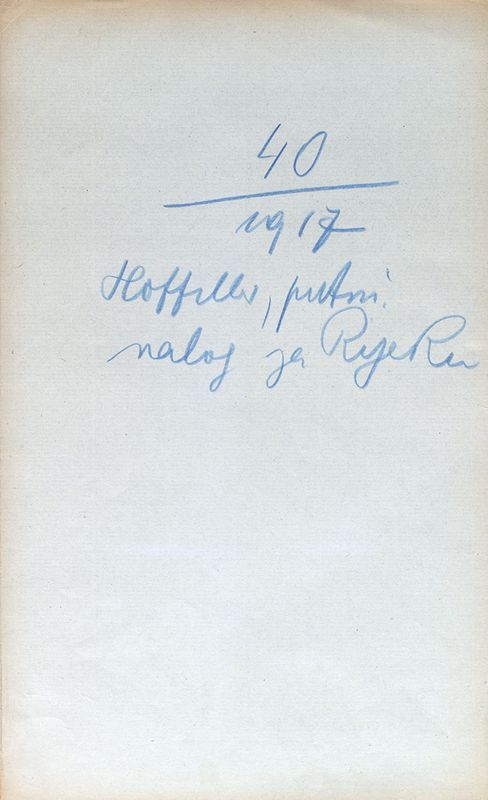 40
1917
Hoffiller, putni
nalog za Rijeku